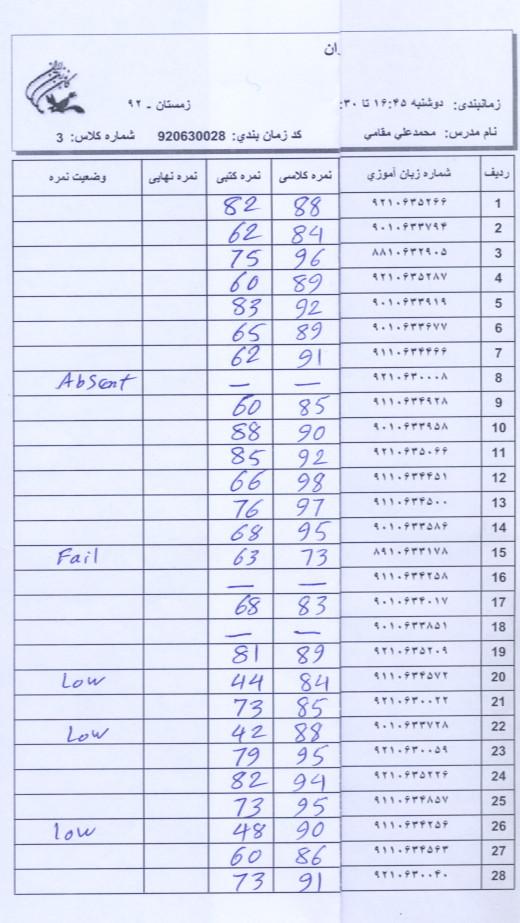 ران
زمانبندی: دوشنبه ۱۶:۴۵ تا ۳۰: زمستان - ۹۲
نام مدرس: محمدعلي مقامي کد زمان بندي: 920630028 شماره کلاس: 3
رديف شماره زبان آموزي نمره کلاسی نمره کتبی نمره نهایی وضعیت نمره
1 ۹۲۱۰۶۳۵۲۶۶ 88 82
2 ۹۰۱۰۶۳۳۷۹۴ 84 62
3 ۸۸۱۰۶۳۲۹۰۵ 96 75
4 ۹۲۱۰۶۳۵۲۸۷ 89 60
5 ۹۰۱۰۶۳۳۹۱۹ 92 83
6 ۹۰۱۰۶۳۳۶۷۷ 89 65
7 ۹۱۱۰۶۳۴۴۶۶ 91 62
8 ۹۲۱۰۶۳۰۰۰۸ — — Absent
9 ۹۱۱۰۶۳۴۹۲۸ 85 60
10 ۹۰۱۰۶۳۳۹۵۸ 90 88
11 ۹۲۱۰۶۳۵۰۶۶ 92 85
12 ۹۱۱۰۶۳۴۴۵۱ 98 66
13 ۹۱۱۰۶۳۴۵۰۰ 97 76
14 ۹۰۱۰۶۳۳۵۸۶ 95 68
15 ۸۹۱۰۶۳۳۱۷۸ 73 63 Fail
16 ۹۱۱۰۶۳۴۲۵۸ — —
17 ۹۰۱۰۶۳۴۰۱۷ 83 68
18 ۹۰۱۰۶۳۳۸۵۱ — —
19 ۹۲۱۰۶۳۵۲۰۹ 89 81
20 ۹۱۱۰۶۳۴۵۷۲ 84 44 Low
21 ۹۲۱۰۶۳۰۰۲۲ 85 73
22 ۹۰۱۰۶۳۳۷۲۸ 88 42 Low
23 ۹۲۱۰۶۳۰۰۵۹ 95 79
24 ۹۲۱۰۶۳۵۲۲۶ 94 82
25 ۹۱۱۰۶۳۴۸۵۷ 95 73
26 ۹۱۱۰۶۳۴۲۵۶ 90 48 low
27 ۹۱۱۰۶۳۴۵۶۳ 86 60
28 ۹۲۱۰۶۳۰۰۴۰ 91 73